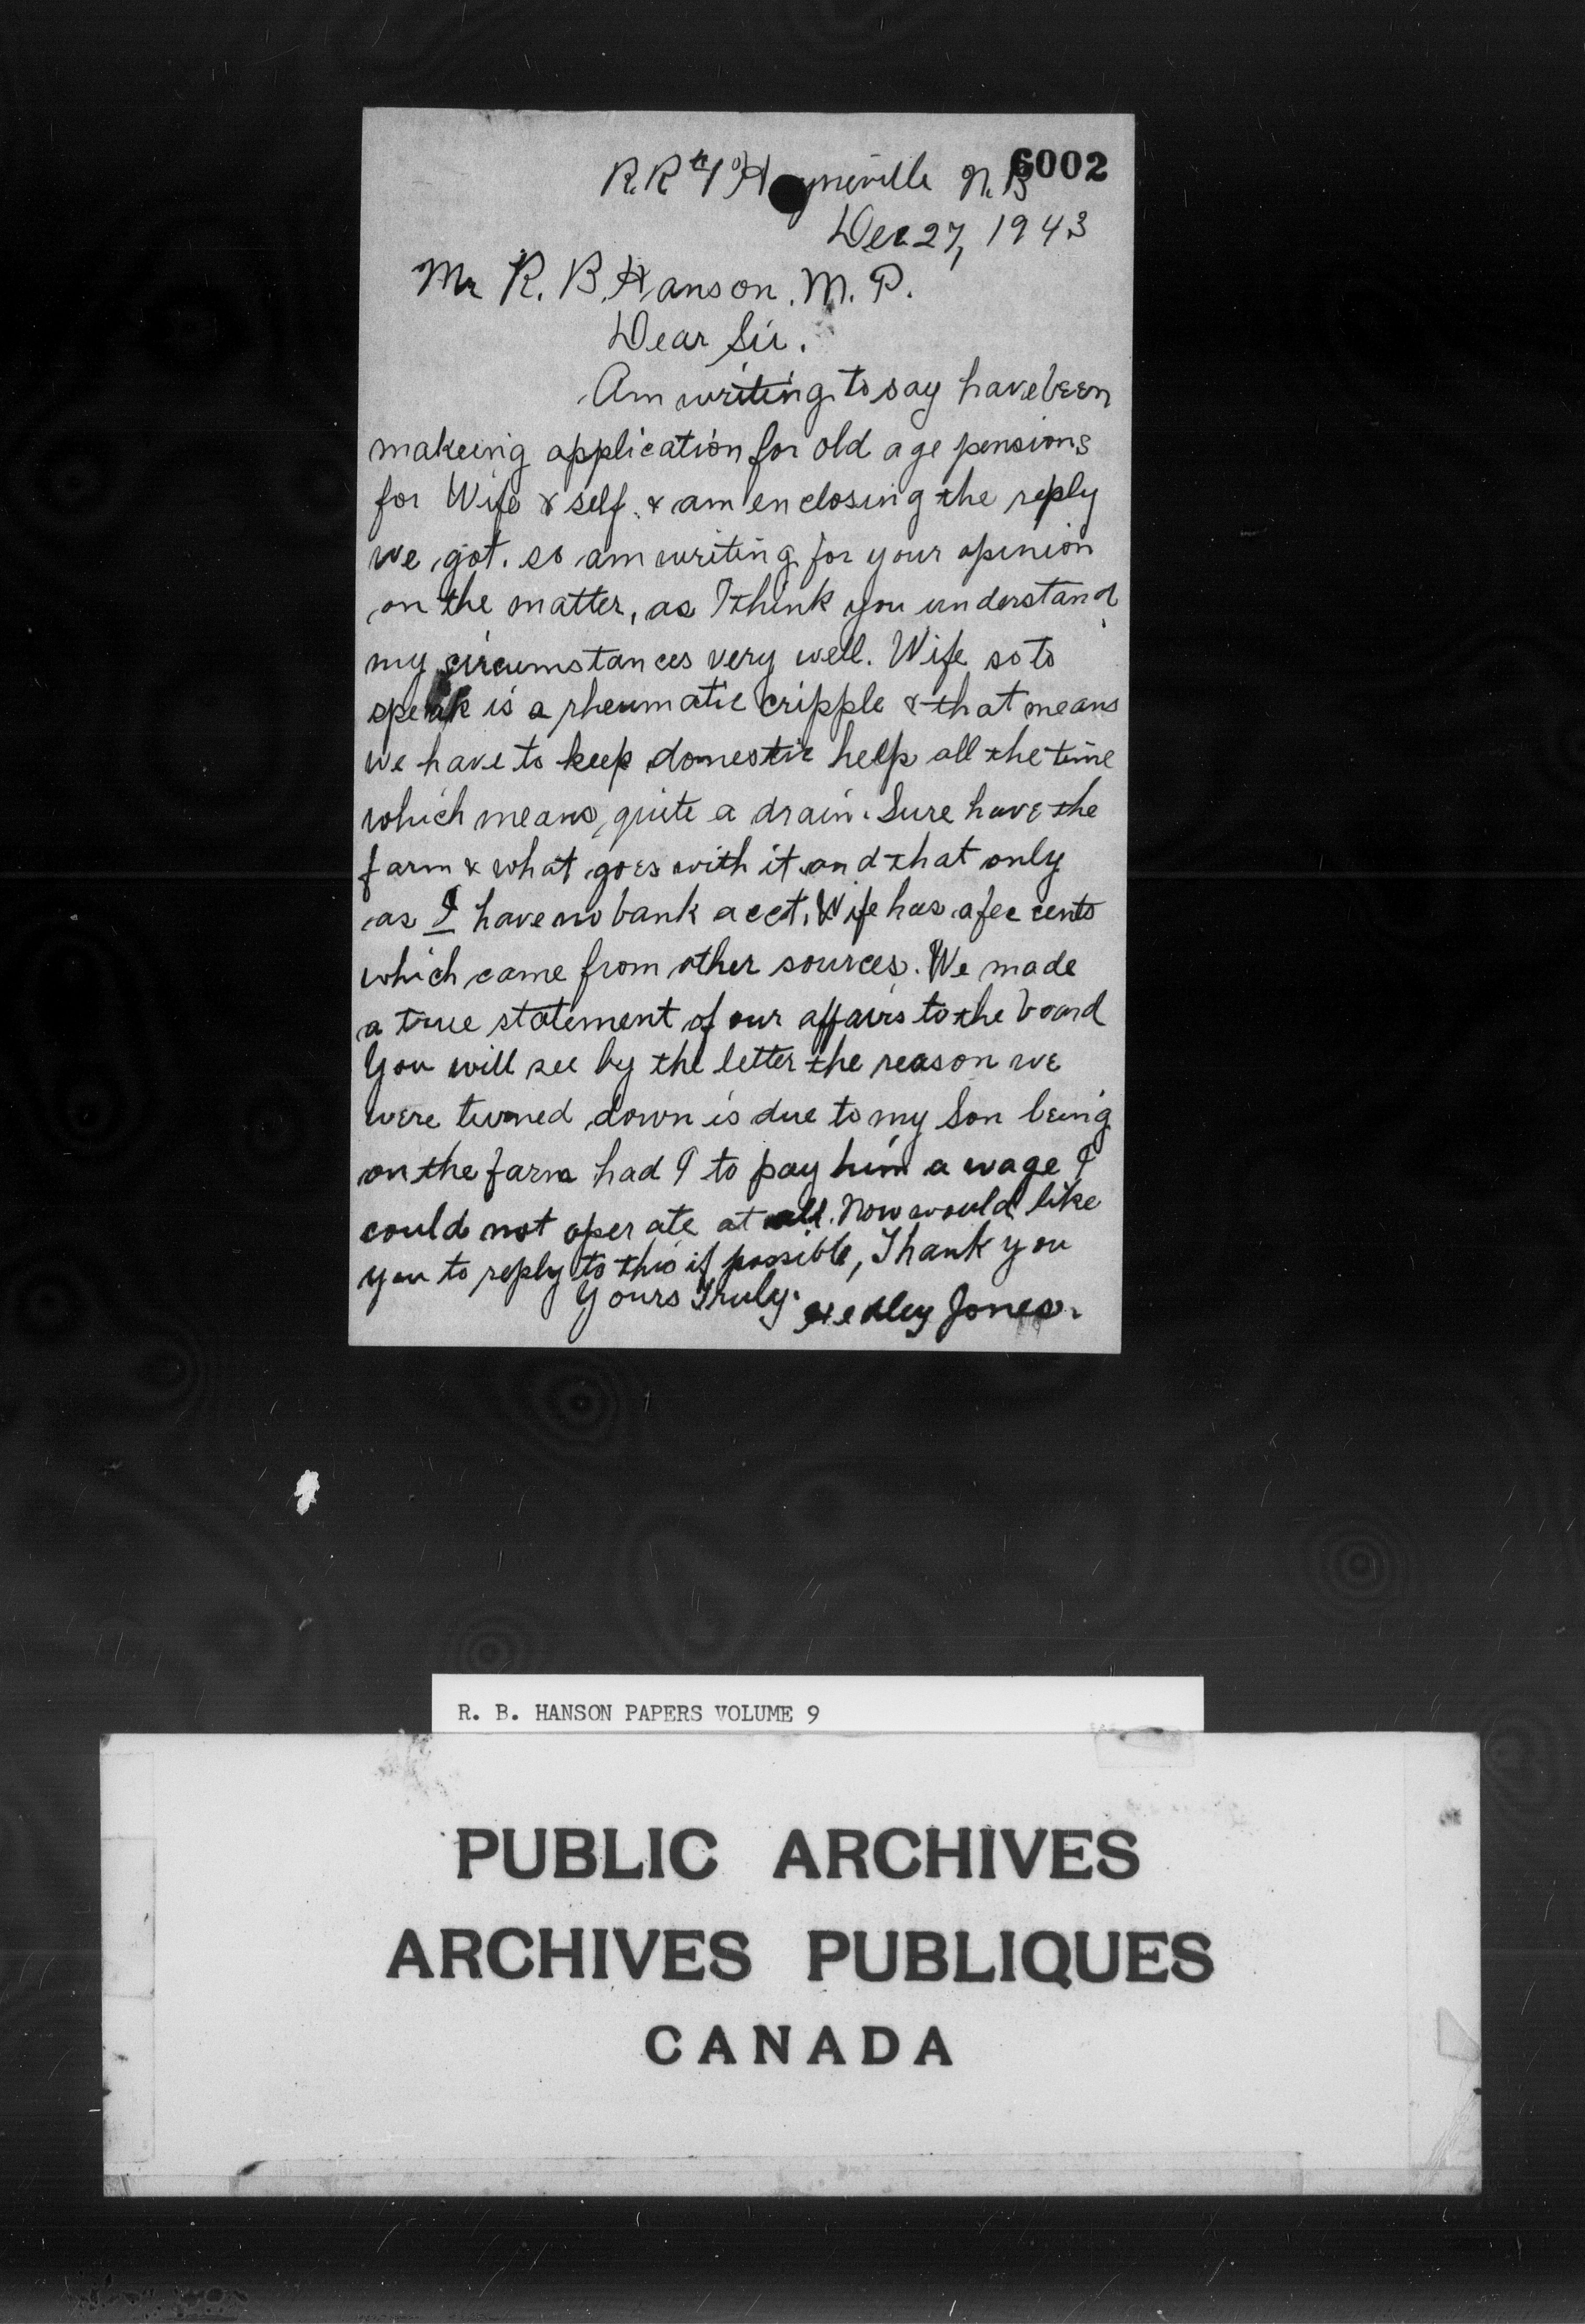 6002
R.R #1 Hayneville N.B
Dec 27, 1943
Mr R. B. Hanson. M. P.
Dear Sir.
Am writing to say have been
makeing application for old age pensions
for Wife & self. & am enclosing the reply
we got. so am writing for your opinion
on the matter, as I think you understand
my circumstances very well. Wife so to
speak is a rheumatic cripple & that means
we have to keep domestic help all the time
which means, quite a drain. Sure have the
farm & what goes with it and that only
as I have no bank acct. Wife has a few cents
which came from other sources. We made
a true statement of our affairs to the board
You will see by the letter the reason we
were turned down is due to my Son being
on the farm had I to pay him a wage I
could not operate at all. Now would like
you to reply to this if possible, Thank you
Yours Truly. Hedley Jones.
R. B. HANSON PAPERS VOLUME 9
PUBLIC ARCHIVES
ARCHIVES PUBLIQUES
CANADA